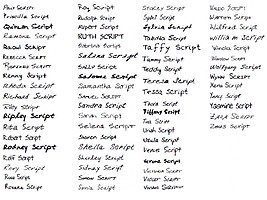 Paul Script
Priscilla Script
Quinlan Script
Ramona Script
Raoul Script
Rebecca Script
Renny Script
Rhoda Script
Richard Script
Riley Script
Ripley Script
Rita Script
Robert Script
Rodney Script
Rolf Script
Rory Script
Rosa Script
Roxana Script
Roy Script
Rudolph Script
Rupert Script
RUTH SCRIPT
Sabrina Script
Salina Script
Sally Script
Salome Script
Samantha Script
Samuel Script
Sandra Script
Sarah Script
Selena Script
Sharon Script
Sheila Script
Shirley Script
Sidney Script
Simon Script
Sonia Script
Stacey Script
Sybil Script
Sylvia Script
Tabitha Script
Taffy Script
Tammy Script
Teddy Script
Teresa Script
Tessa Script
Thora Script
Tiffany Script
Tina Script
Uriah Script
Ursula Script
Vernon Script
Victor Script
Vivian Script
Wade Script
Warren Script
Wilfred Script
William Script
Winola Script
Winslow Script
Wolfgang Script
Wynn Script
Xena Script
Yancy Script
Yasmine Script
Zara Script
Zena Script